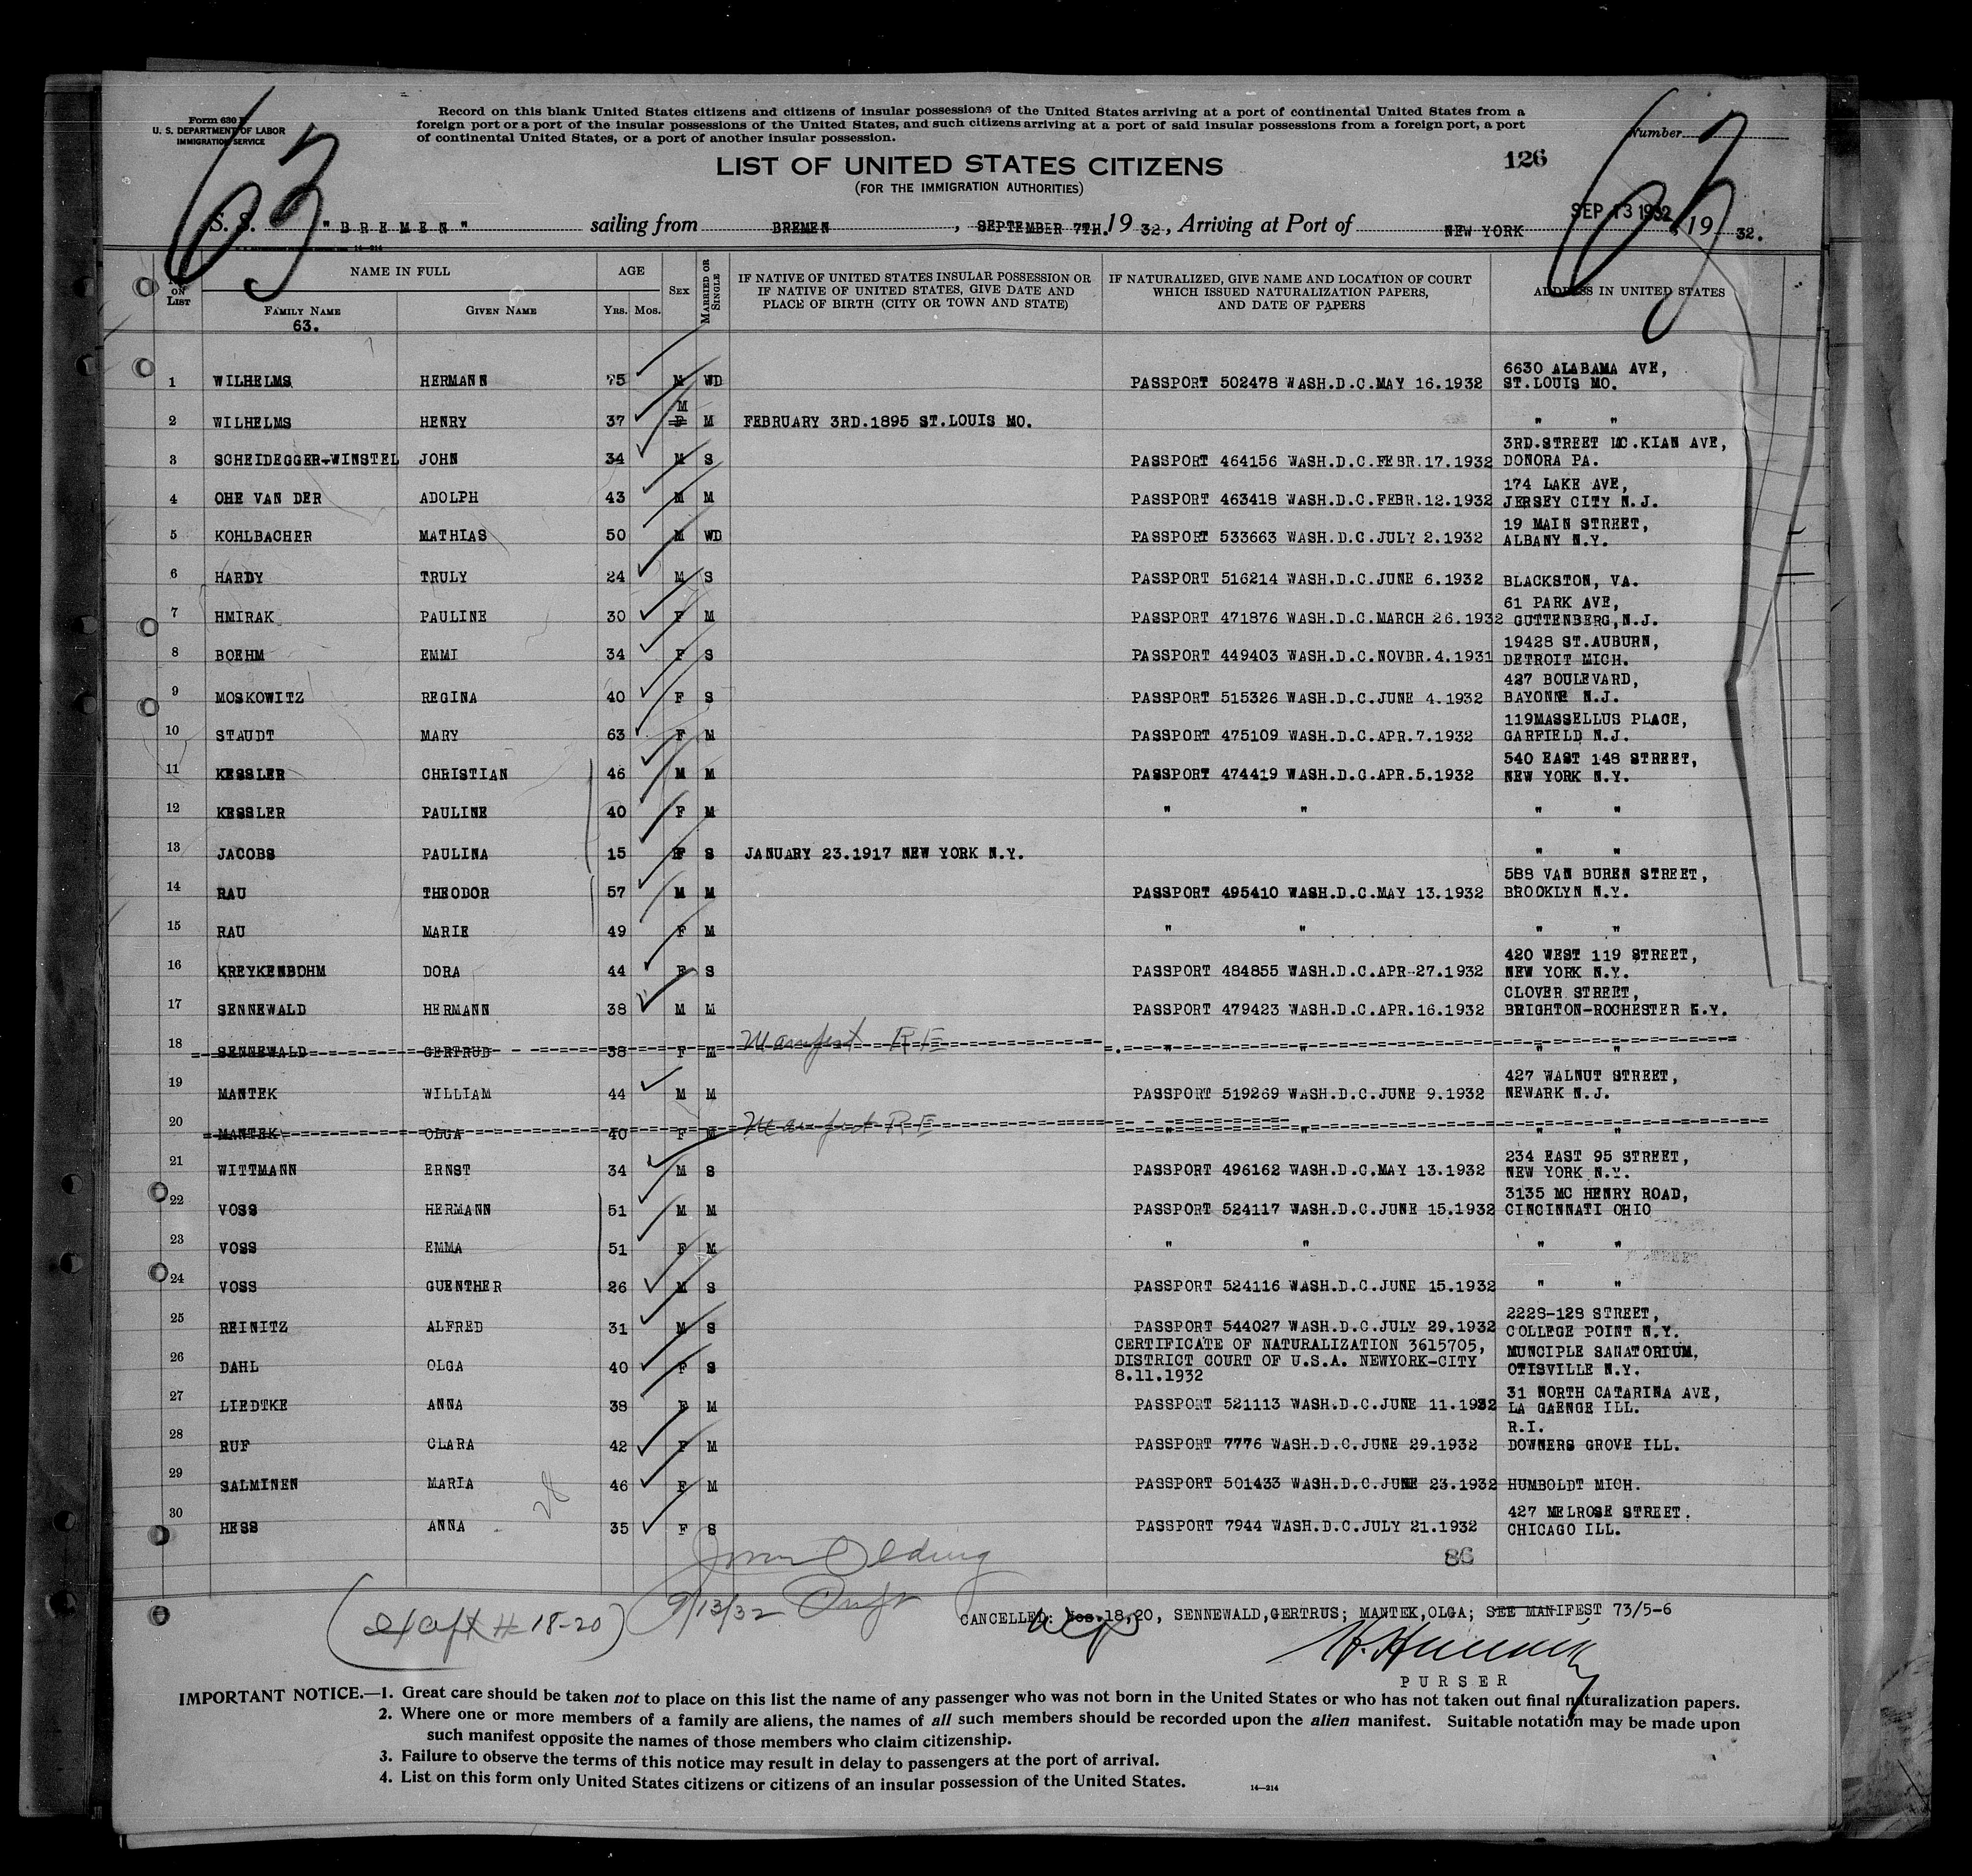 Form 630
U. S. DEPARTMENT OF LABOR
IMMIGRATION SERVICE
63
Record on this blank United States citizens and citizens of insular possessions of the United States arriving at a port of continental United States from a
foreign port or a port of the insular possessions of the United States, and such citizens arriving at a port of said insular possessions from a foreign port, a port
of continental United States, or a port of another insular possession.
Number
63
LIST OF UNITED STATES CITIZENS
126
(FOR THE IMMIGRATION AUTHORITIES)
SEP 13 1932
S. S. "BREMEN" sailing from BREMEN, SEPTEMBER 7TH. 19 32, Arriving at Port of NEW YORK, 19 32.
14-214
No. ON LIST
NAME IN FULL
FAMILY NAME
63.
GIVEN NAME
AGE
YRS. MOS.
SEX
MARRIED OR SINGLE
IF NATIVE OF UNITED STATES INSULAR POSSESSION OR
IF NATIVE OF UNITED STATES, GIVE DATE AND
PLACE OF BIRTH (CITY OR TOWN AND STATE)
IF NATURALIZED, GIVE NAME AND LOCATION OF COURT
WHICH ISSUED NATURALIZATION PAPERS,
AND DATE OF PAPERS
ADDRESS IN UNITED STATES
6630 ALABAMA AVE,
1 WILHELMS HERMANN 75 M WD PASSPORT 502478 WASH.D.C.MAY 16.1932 ST.LOUIS MO.
M
2 WILHELMS HENRY 37 F M FEBRUARY 3RD.1895 ST.LOUIS MO. " "
3RD.STREET MC.KIAN AVE,
3 SCHEIDEGGER-WINSTEL JOHN 34 M S PASSPORT 464156 WASH.D.C.FEBR.17.1932 DONORA PA.
174 LAKE AVE,
4 OHE VAN DER ADOLPH 43 M M PASSPORT 463418 WASH.D.C.FEBR.12.1932 JERSEY CITY N.J.
19 MAIN STREET,
5 KOHLBACHER MATHIAS 50 M WD PASSPORT 533663 WASH.D.C.JULY 2.1932 ALBANY N.Y.
6 HARDY TRULY 24 M S PASSPORT 516214 WASH.D.C.JUNE 6.1932 BLACKSTON, VA.
61 PARK AVE,
7 HMIRAK PAULINE 30 F M PASSPORT 471876 WASH.D.C.MARCH 26.1932 GUTTENBERG,N.J.
19428 ST.AUBURN,
8 BOEHM EMMI 34 F S PASSPORT 449403 WASH.D.C.NOVBR.4.1931 DETROIT MICH.
427 BOULEVARD,
9 MOSKOWITZ REGINA 40 F S PASSPORT 515326 WASH.D.C.JUNE 4.1932 BAYONNE N.J.
119MASSELLUS PLACE,
10 STAUDT MARY 63 F M PASSPORT 475109 WASH.D.C.APR.7.1932 GARFIELD N.J.
540 EAST 148 STREET,
11 KESSLER CHRISTIAN 46 M M PASSPORT 474419 WASH.D.C.APR.5.1932 NEW YORK N.Y.
12 KESSLER PAULINE 40 F M " " " "
13 JACOBS PAULINA 15 F S JANUARY 23.1917 NEW YORK N.Y. " "
588 VAN BUREN STREET,
14 RAU THEODOR 57 M M PASSPORT 495410 WASH.D.C.MAY 13.1932 BROOKLYN N.Y.
15 RAU MARIE 49 F M " " " "
420 WEST 119 STREET,
16 KREYKENBOHM DORA 44 F S PASSPORT 484855 WASH.D.C.APR-27.1932 NEW YORK N.Y.
CLOVER STREET,
17 SENNEWALD HERMANN 38 M M PASSPORT 479423 WASH.D.C.APR.16.1932 BRIGHTON-ROCHESTER N.Y.
18 SENNEWALD GERTRUD 38 F M Manifest RE " " " "
427 WALNUT STREET,
19 MANTEK WILLIAM 44 M M PASSPORT 519269 WASH.D.C.JUNE 9.1932 NEWARK N.J.
20 MANTEK OLGA 40 F M Manifest RE " " " "
234 EAST 95 STREET,
21 WITTMANN ERNST 34 M S PASSPORT 496162 WASH.D.C.MAY 13.1932 NEW YORK N.Y.
3135 MC HENRY ROAD,
22 VOSS HERMANN 51 M M PASSPORT 524117 WASH.D.C.JUNE 15.1932 CINCINNATI OHIO
23 VOSS EMMA 51 F M " " " "
24 VOSS GUENTHER 26 M S PASSPORT 524116 WASH.D.C.JUNE 15.1932 " "
2228-128 STREET,
25 REINITZ ALFRED 31 M S PASSPORT 544027 WASH.D.C.JULY 29.1932 COLLEGE POINT N.Y.
CERTIFICATE OF NATURALIZATION 3615705, MUNCIPLE SANATORIUM,
26 DAHL OLGA 40 F S DISTRICT COURT OF U.S.A. NEWYORK-CITY OTISVILLE N.Y.
8.11.1932
31 NORTH CATARINA AVE,
27 LIEDTKE ANNA 38 F M PASSPORT 521113 WASH.D.C.JUNE 11.1932 LA GAENGE ILL.
R.I.
28 RUF CLARA 42 F M PASSPORT 7776 WASH.D.C.JUNE 29.1932 DOWNERS GROVE ILL.
29 SALMINEN MARIA 46 F M PASSPORT 501433 WASH.D.C.JUNE 23.1932 HUMBOLDT MICH.
28
427 MELROSE STREET.
30 HESS ANNA 35 F S PASSPORT 7944 WASH.D.C.JULY 21.1932 CHICAGO ILL.
86
9/13/32
# 18-20)
CANCELLED: Nos.18,20, SENNEWALD,GERTRUS; MANTEK,OLGA; SEE MANIFEST 73/5-6
PURSER
IMPORTANT NOTICE.—1. Great care should be taken not to place on this list the name of any passenger who was not born in the United States or who has not taken out final naturalization papers.
2. Where one or more members of a family are aliens, the names of all such members should be recorded upon the alien manifest. Suitable notation may be made upon
such manifest opposite the names of those members who claim citizenship.
3. Failure to observe the terms of this notice may result in delay to passengers at the port of arrival.
4. List on this form only United States citizens or citizens of an insular possession of the United States.
14-214